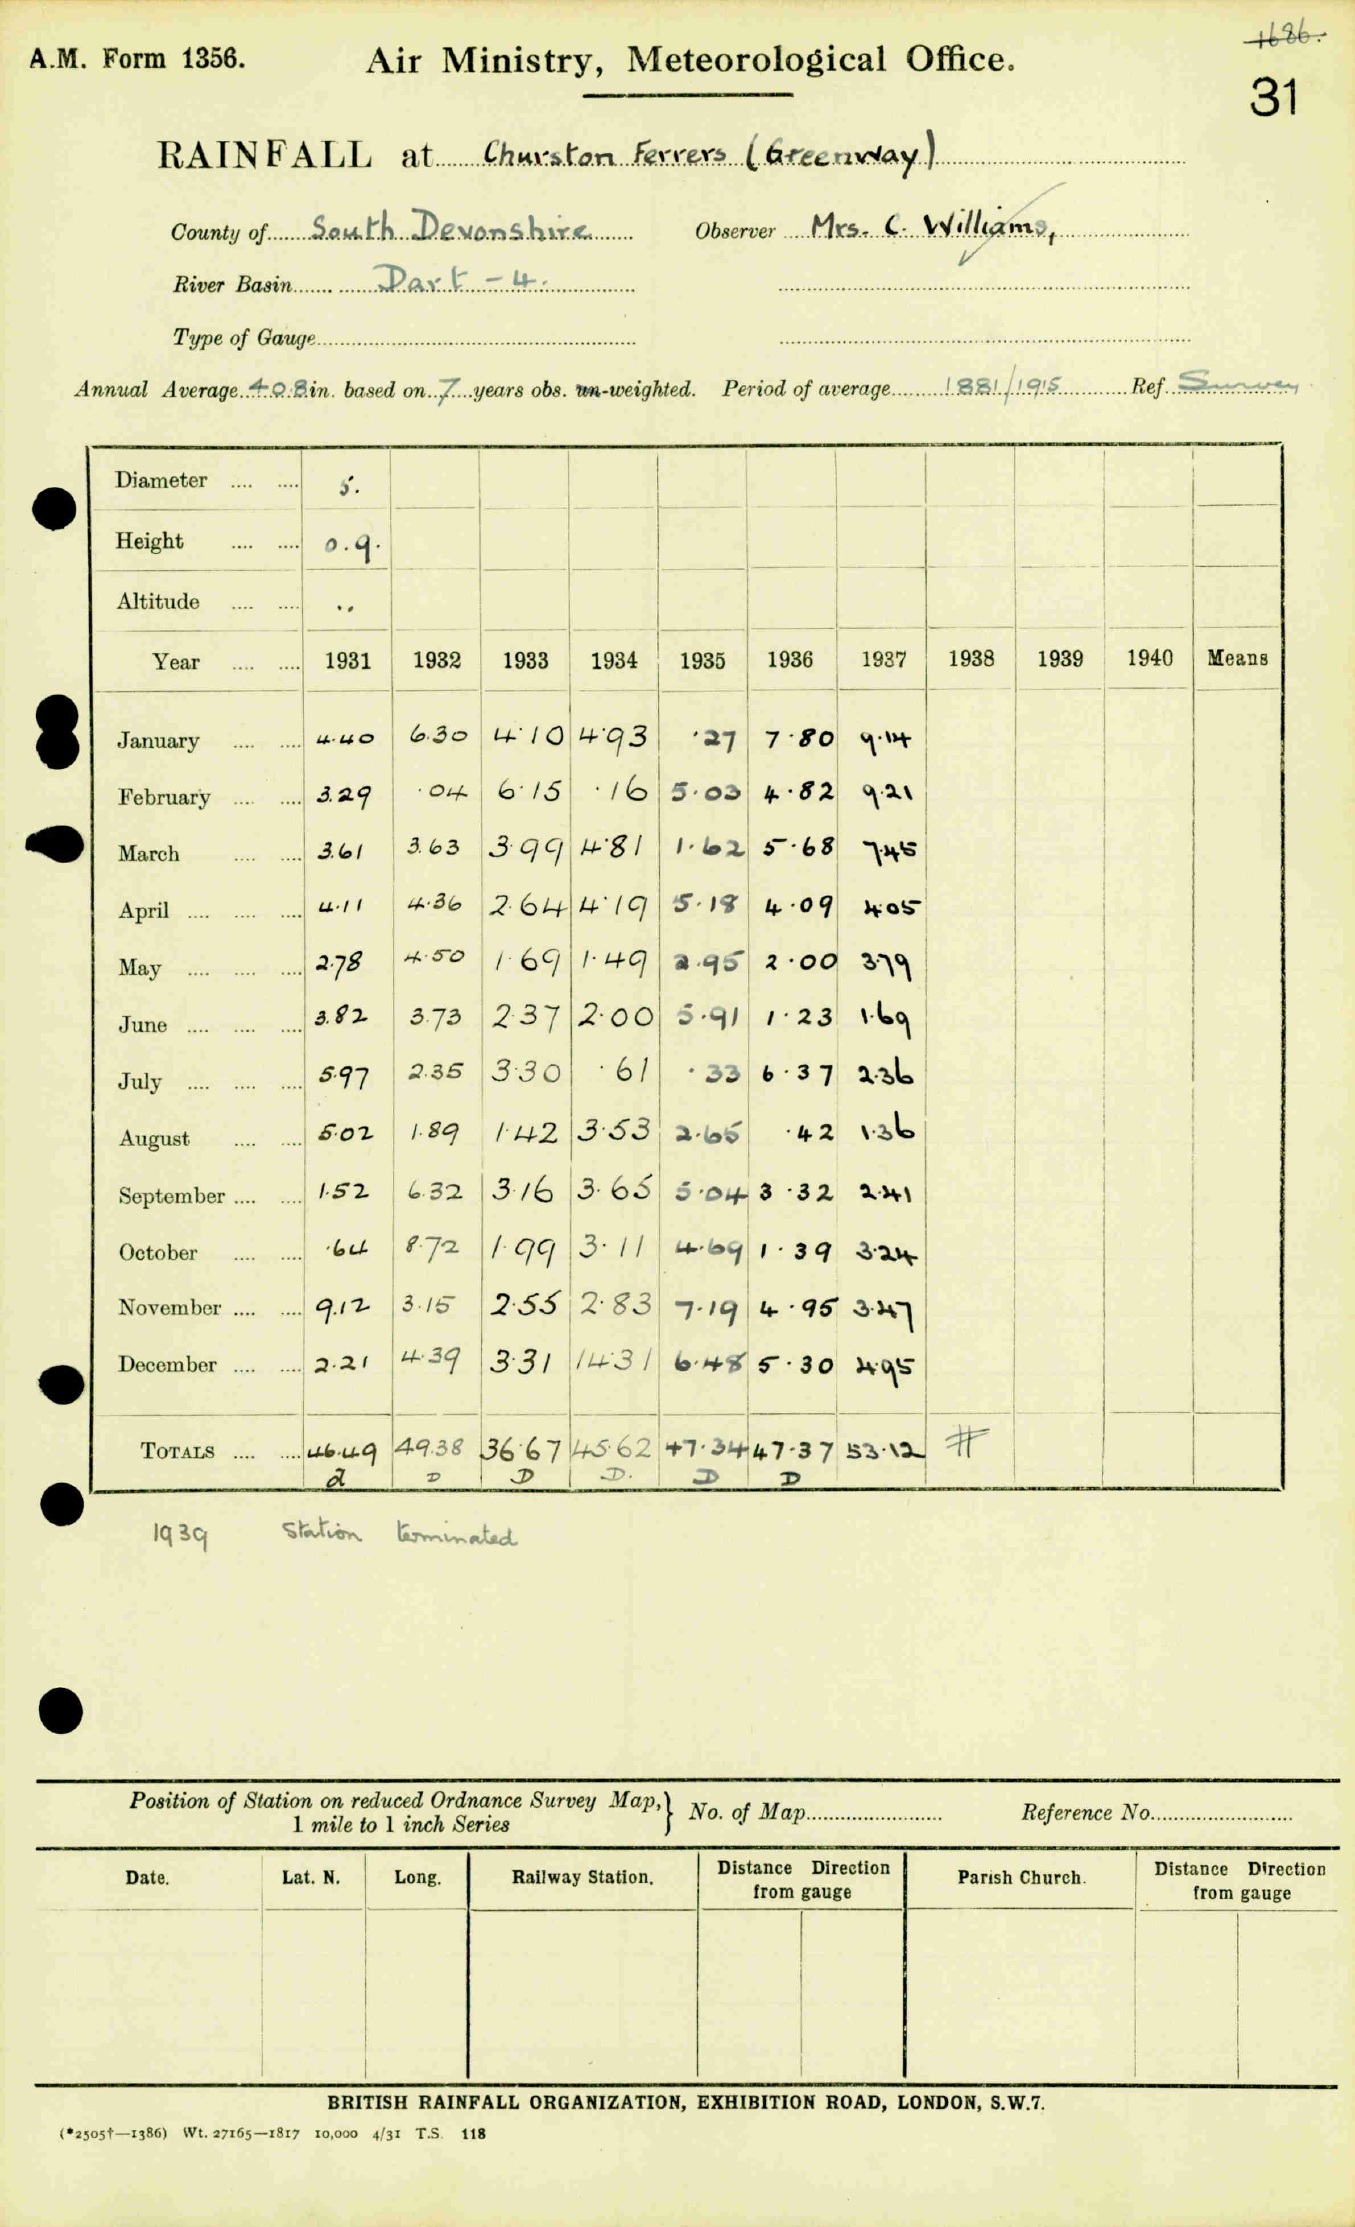 1686.
A.M. Form 1356. Air Ministry, Meteorological Office.
31
RAINFALL at Churston Ferrers (Greenway)
County of South Devonshire Observer Mrs. C. Williams,
River Basin Dart - 4.
Type of Gauge
Annual Average 40.8 in. based on 7 years obs. un-weighted. Period of average 1881/1915 Ref. Survey
Diameter 5.
Height 0.9.
Altitude ..
Year 1931 1932 1933 1934 1935 1936 1937 1938 1939 1940 Means
January 4.40 6.30 4.10 4.93 .27 7.80 9.14
February 3.29 .04 6.15 .16 5.03 4.82 9.21
March 3.61 3.63 3.99 4.81 1.62 5.68 7.45
April 4.11 4.36 2.64 4.19 5.18 4.09 4.05
May 2.78 4.50 1.69 1.49 2.95 2.00 3.79
June 3.82 3.73 2.37 2.00 5.91 1.23 1.69
July 5.97 2.35 3.30 .61 .33 6.37 2.36
August 5.02 1.89 1.42 3.53 2.65 .42 1.36
September 1.52 6.32 3.16 3.65 5.04 3.32 2.41
October .64 8.72 1.99 3.11 4.69 1.39 3.24
November 9.12 3.15 2.55 2.83 7.19 4.95 3.47
December 2.21 4.39 3.31 14.31 6.48 5.30 4.95
TOTALS 46.49 49.38 36.67 45.62 47.34 47.37 53.12 #
d D D D. D D
1939 Station terminated
Position of Station on reduced Ordnance Survey Map, } No. of Map Reference No.
1 mile to 1 inch Series
Date. Lat. N. Long. Railway Station. Distance Direction from gauge Parish Church. Distance Direction from gauge
BRITISH RAINFALL ORGANIZATION, EXHIBITION ROAD, LONDON, S.W.7.
(*2505†—1386) Wt. 27165—1817 10,000 4/31 T.S. 118